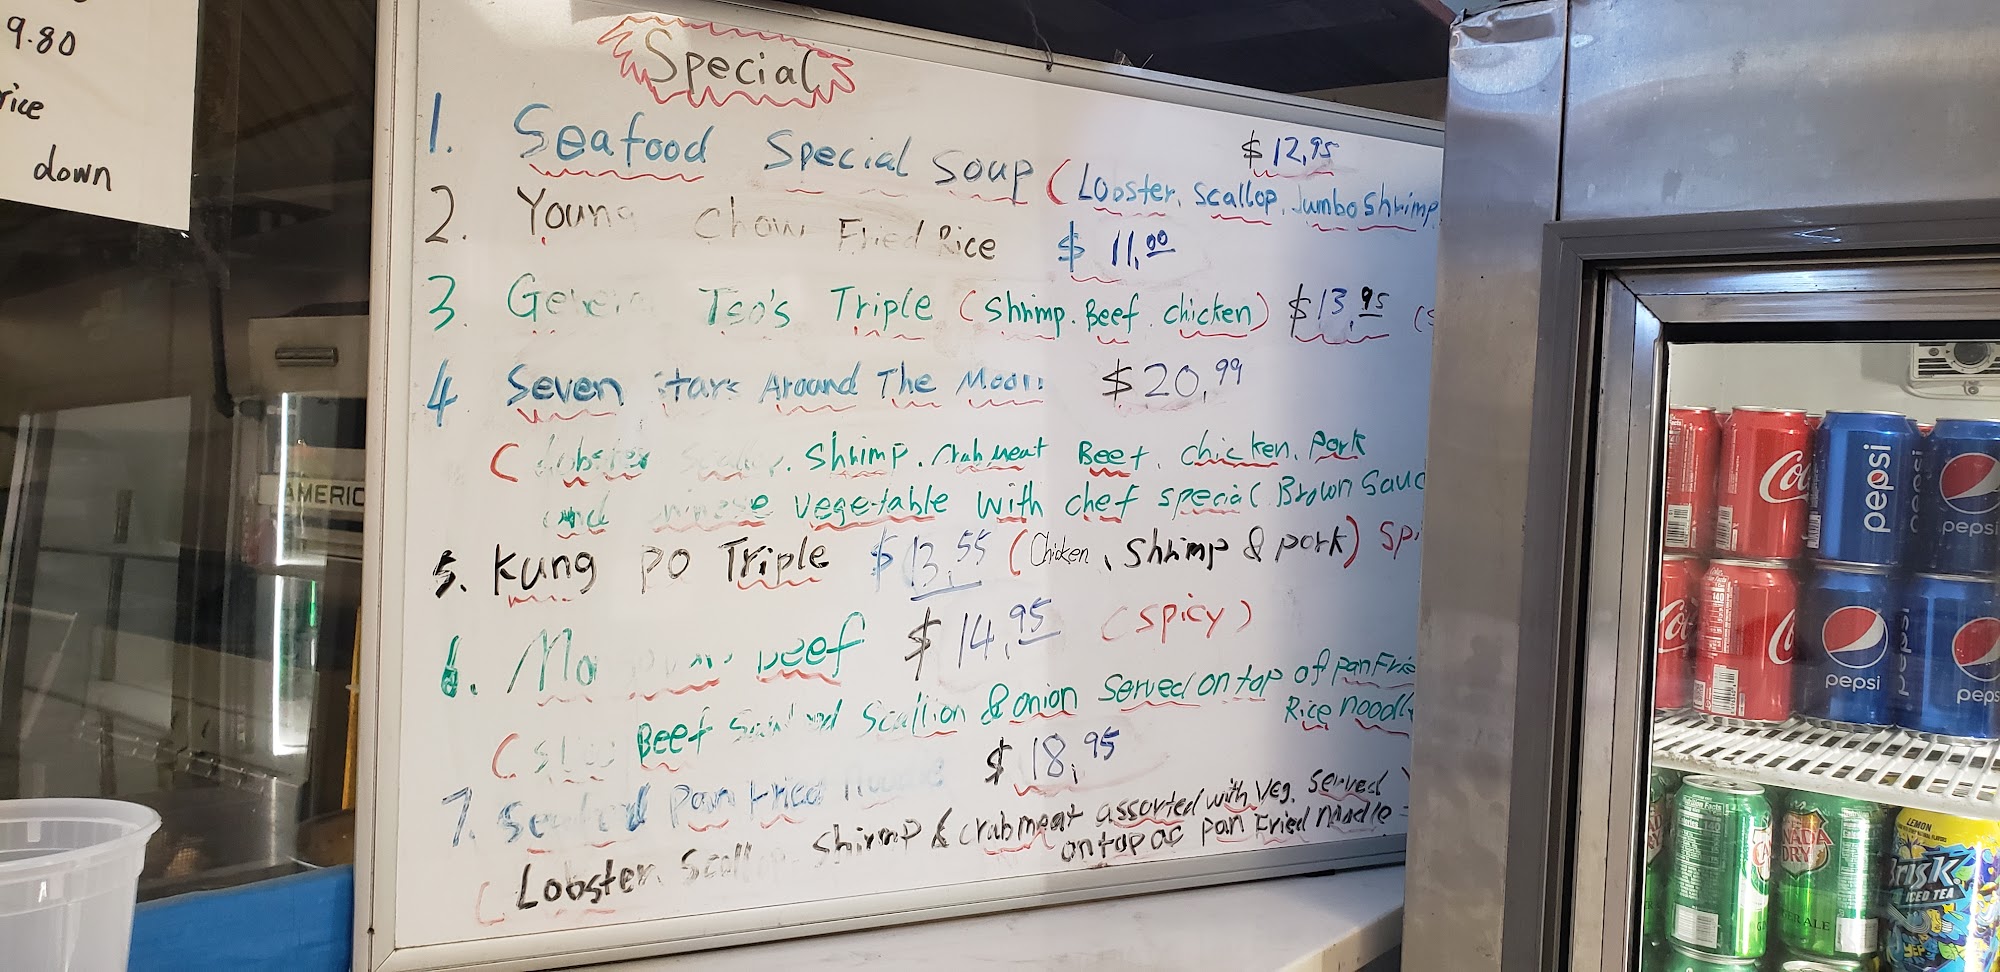 9.80
rice
down
Special
1. Seafood Special Soup $12.95
(Lobster, Scallop, Jumbo Shrimp
2. Young Chow Fried Rice $11.00
3. General Tso's Triple (Shrimp. Beef. chicken) $13.95 (S
4 Seven Stars Around The Moon $20.99
( Lobster Scallop. Shrimp. Crab meat Beef. chicken. Pork
and Chinese vegetable with chef special Brown Sauc
5. Kung Po Triple $13.55 (Chicken, Shrimp & pork) Spi
6. beef $14.95 (spicy)
( Beef Scallion & onion Served on top of pan Frie
Rice noodl
7. Seafood Pan Fried Noodle $18.95
( Lobster Scallop Shrimp & crab meat assorted with Veg. Served
on top of pan Fried Noodle
AMERIC
Col
pepsi
pepsi
Col
pepsi
pepsi
CANADA DRY
LEMON
Brisk
ICED TEA